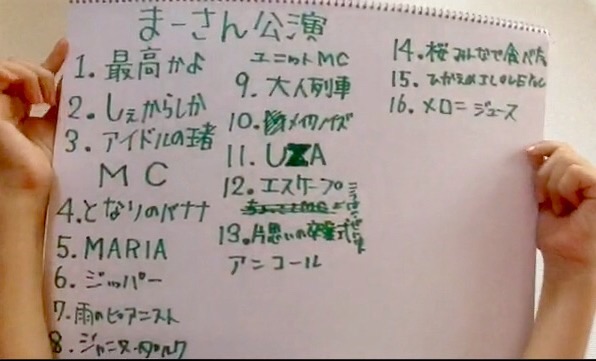 まーさん公演
1. 最高かよ
2. しぇからしか
3. アイドルの王者
MC
4. となりのバナナ
5. MARIA
6. ジッパー
7. 雨のピアニスト
8.
ユニットMC
9. 大人列車
10. メイクノイズ
11. UZA
12. エスケープ
13. 片思いの卒業式
アンコール
14. 桜 みんなで食べた
15. ひかえめ I LOVE YOU
16. メロンジュース